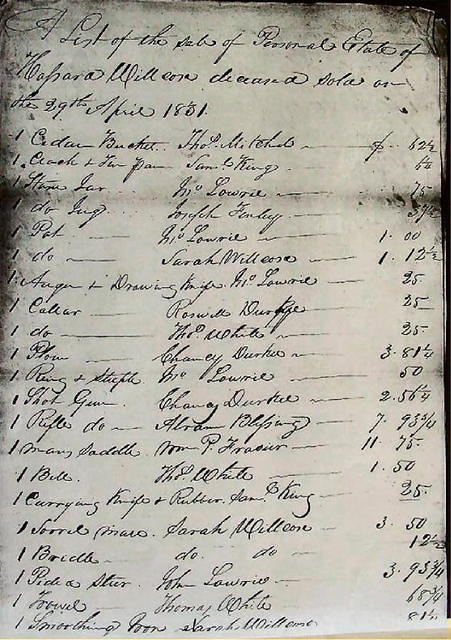 A List of the sale of Personal Estate of
Hassard Willcox deceased sold on
the 29th April 1831.
1 Cedar Bucket Thos. Mitchel $ 62½
1 Crack & Tar Pan Saml. King 6¼
1 Stone Jar Mc Lowrie 75
1 do Jug Joseph Finley 37½
1 Pot Mc Lowrie 1.00
1 do Sarah Willcox 1.12½
1 Auger & Drawing Knife Mc Lowrie 25
1 Collar Roswell Durkee 25
1 do Thos. White 25
1 Plow Chancy Durkee 3.81¼
1 Ring & Staple Mc Lowrie 50
1 Shot Gun Chancy Durkee 2.56¼
1 Rifle do Abram Blessing 7.93¾
1 mans Saddle Wm P. Frasier 11.75
1 Bell Thos. White 1.50
1 Currying Knife & Rubber Saml. King 25
1 Sorrel mare Sarah Willcox 3.50
1 Bridle do. do 12½
1 Pided Steer John Lowrie 3.93¾
1 Thomas White 68¾
1 Smoothing Iron Sarah Willcox 81¼